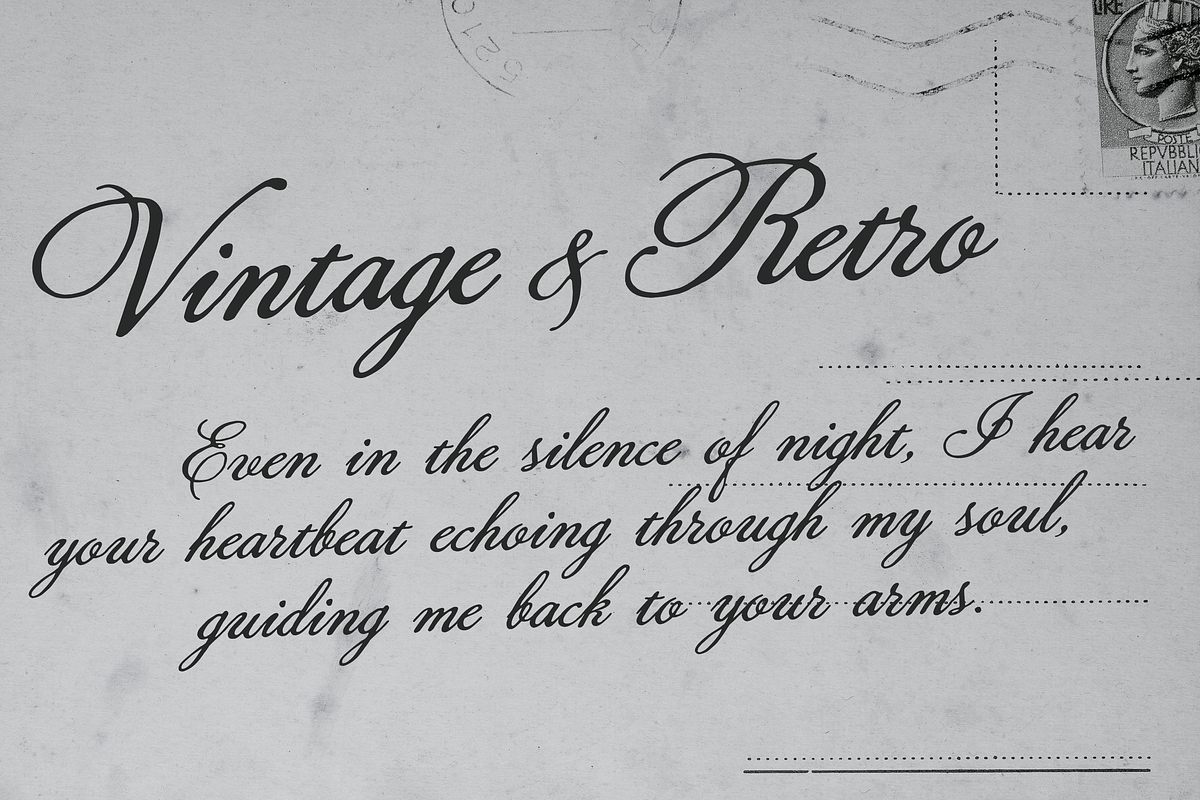 5210
LIRE
POSTE
REPVBBLI
ITALIAN
Vintage & Retro
Even in the silence of night, I hear
your heartbeat echoing through my soul,
guiding me back to your arms.